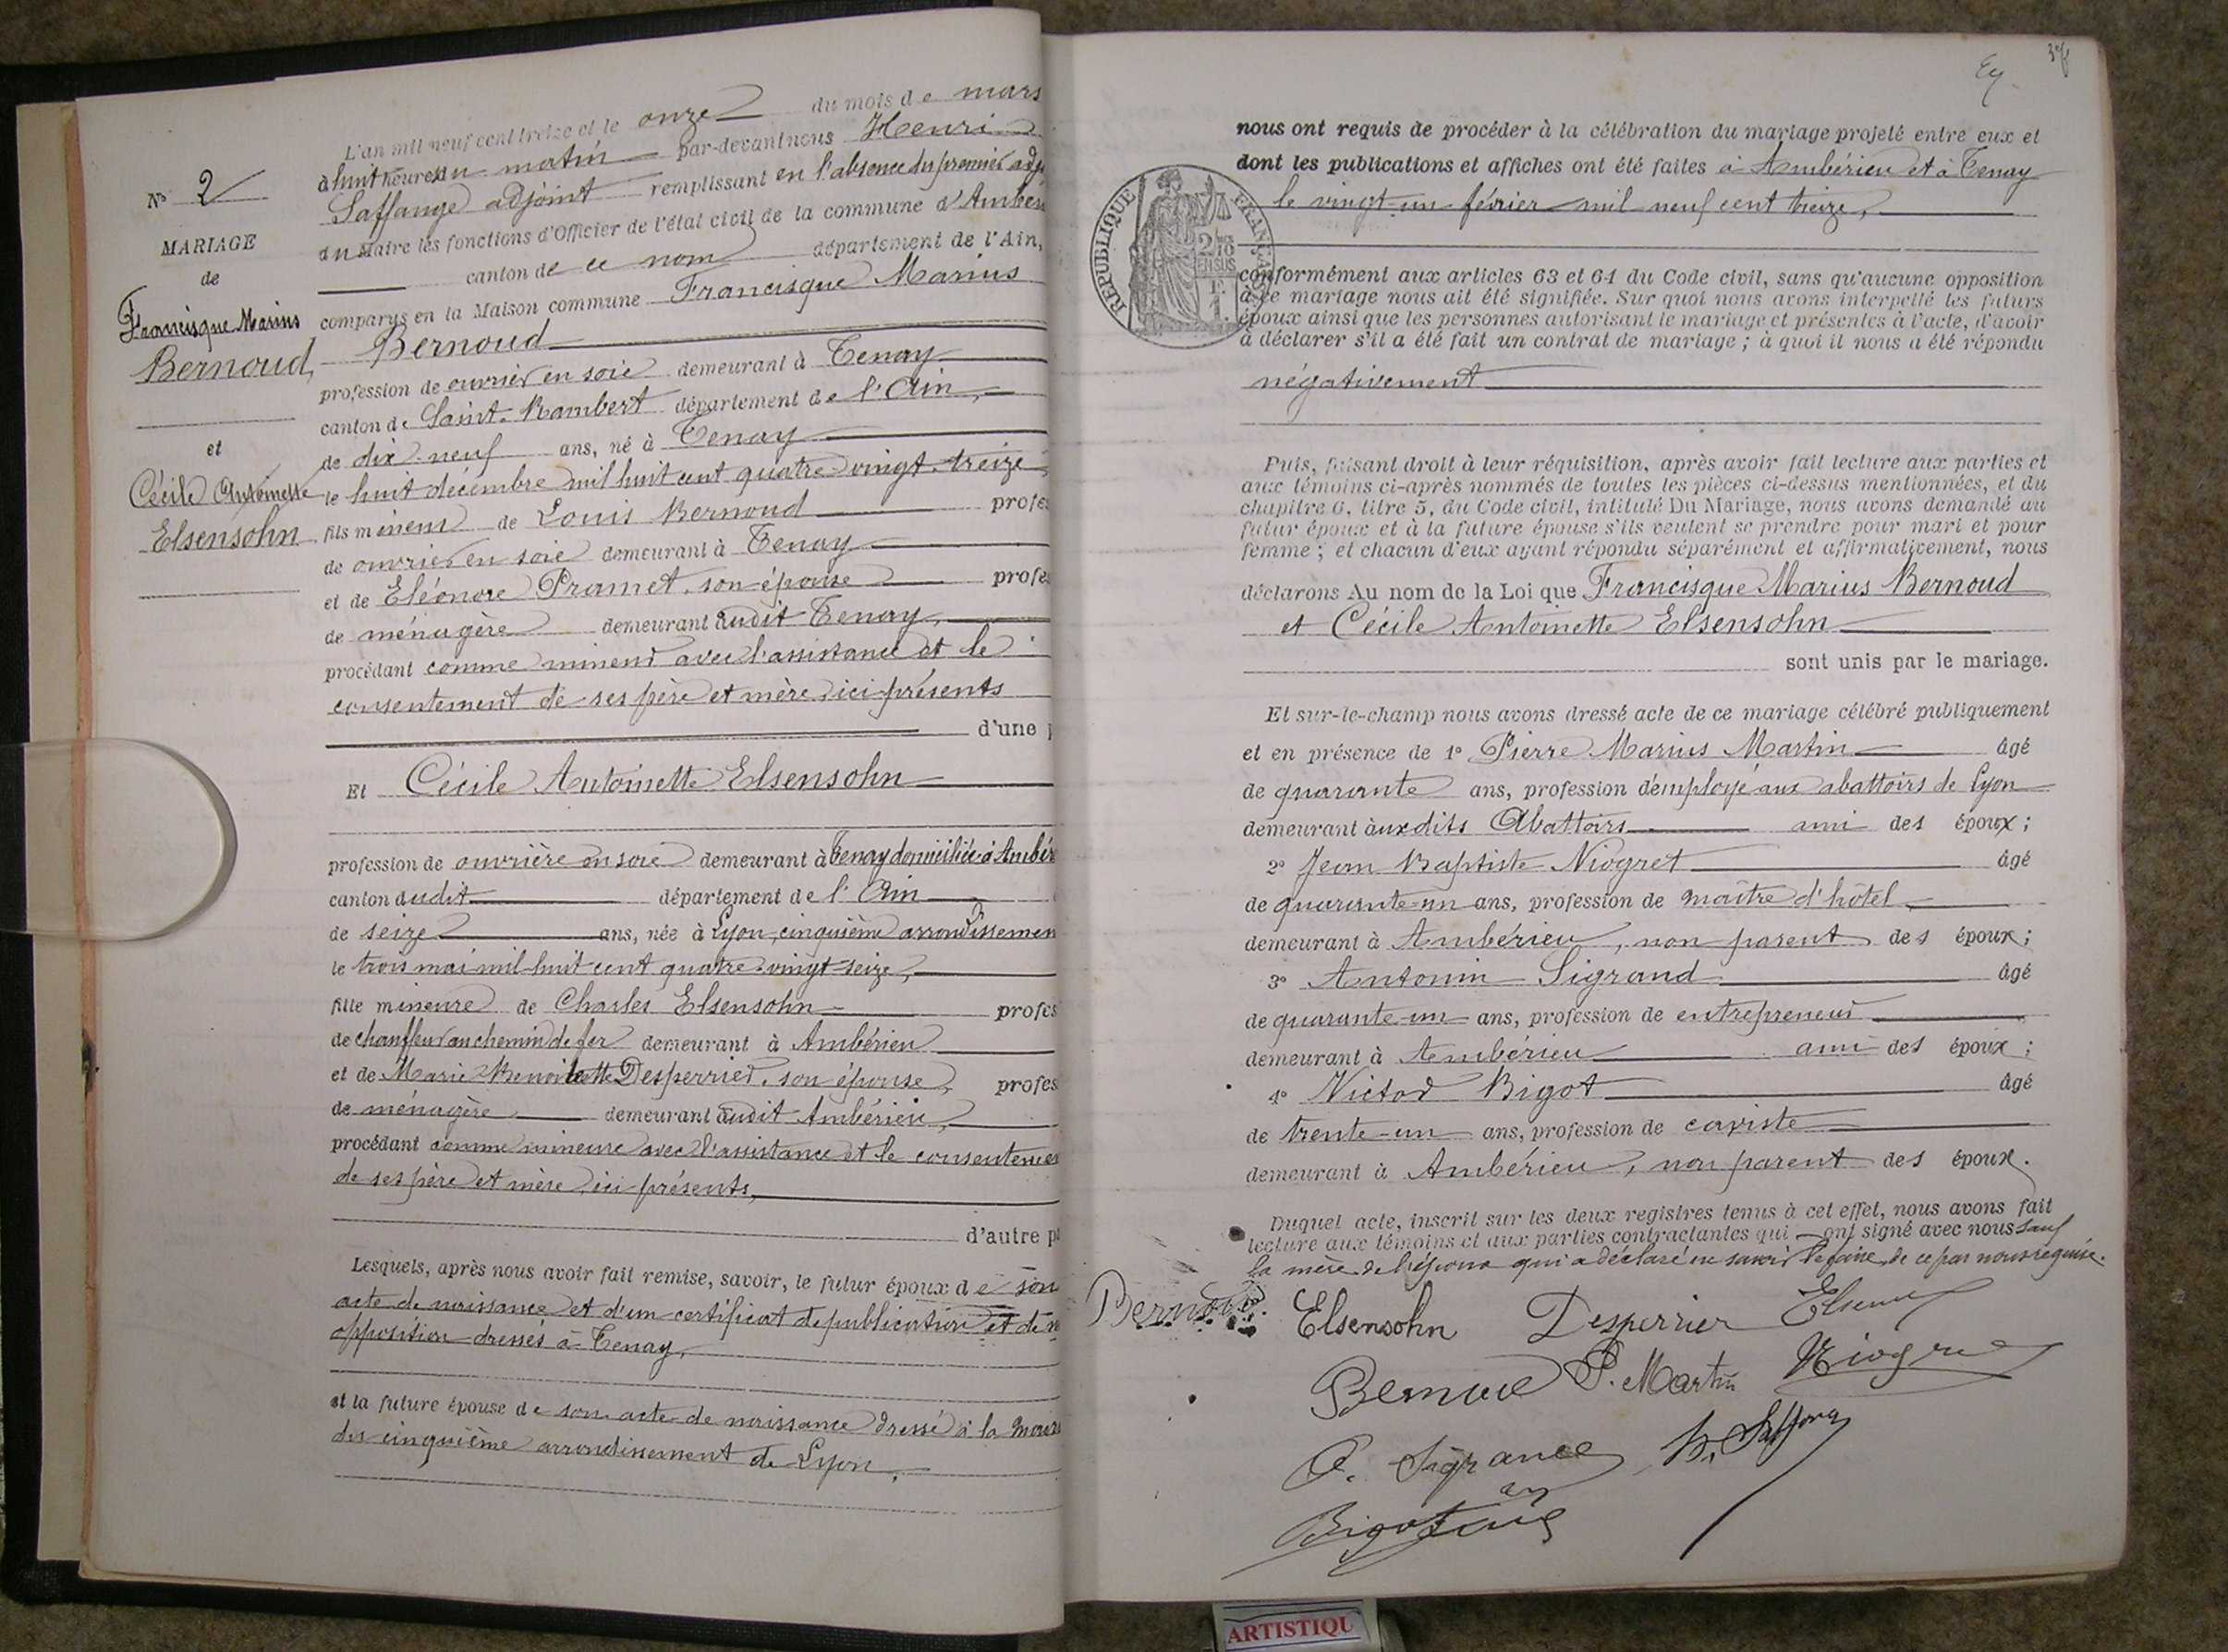 L'an mil neuf cent treize et le onze du mois de mars
à huit heures du matin par-devant nous Henri
Saffange adjoint remplissant en l'absence du premier adj
du Maire les fonctions d'Officier de l'état civil de la commune d'Ambér
canton de ce nom département de l'Ain,
comparus en la Maison commune Francisque Marius
Bernoud
profession de ouvrier en soie demeurant à Tenay
canton de Saint-Rambert département de l'Ain,
de dix-neuf ans, né à Tenay
le huit décembre mil huit cent quatre-vingt-treize,
fils mineur de Louis Bernoud profes
de ouvrier en soie demeurant à Tenay
et de Eléonore Pramet, son épouse profes
de ménagère demeurant audit Tenay,
procédant comme mineur avec l'assistance et le
consentement de ses père et mère ici présents
d'une p
Et Cécile Antoinette Elsensohn
profession de ouvrière en soie demeurant à Tenay domiciliée à Ambér
canton dudit département de l'Ain
de seize ans, née à Lyon, cinquième arrondissemen
le trois mai mil huit cent quatre-vingt-seize,
fille mineure de Charles Elsensohn profes
de chauffeur au chemin de fer demeurant à Ambérieu
et de Marie Desperrier, son épouse, profes
de ménagère demeurant audit Ambérieu,
procédant comme mineure avec l'assistance et le consentemen
de ses père et mère, ici présents,
d'autre pa
Lesquels, après nous avoir fait remise, savoir, le futur époux de son
acte de naissance et d'un certificat de publication et de n
opposition dressés à Tenay,
et la future épouse de son acte de naissance dressé à la mairi
du cinquième arrondissement de Lyon,
N° 2
MARIAGE
de
Francisque Marius
Bernoud,
et
Cécile Antoinette
Elsensohn
nous ont requis de procéder à la célébration du mariage projeté entre eux et
dont les publications et affiches ont été faites à Ambérieu et à Tenay
le vingt-un février mil neuf cent treize,
RÉPUBLIQUE FRANÇAISE
conformément aux articles 63 et 64 du Code civil, sans qu'aucune opposition
à ce mariage nous ait été signifiée. Sur quoi nous avons interpellé les futurs
époux ainsi que les personnes autorisant le mariage et présentes à l'acte, d'avoir
à déclarer s'il a été fait un contrat de mariage ; à quoi il nous a été répondu
négativement
Puis, faisant droit à leur réquisition, après avoir fait lecture aux parties et
aux témoins ci-après nommés de toutes les pièces ci-dessus mentionnées, et du
chapitre 6, titre 5, du Code civil, intitulé Du Mariage, nous avons demandé au
futur époux et à la future épouse s'ils veulent se prendre pour mari et pour
femme ; et chacun d'eux ayant répondu séparément et affirmativement, nous
déclarons Au nom de la Loi que Francisque Marius Bernoud
et Cécile Antoinette Elsensohn
sont unis par le mariage.
Et sur-le-champ nous avons dressé acte de ce mariage célébré publiquement
et en présence de 1° Pierre Marius Martin âgé
de quarante ans, profession d'employé aux abattoirs de Lyon
demeurant auxdits Abattoirs ami des époux ;
2° Jean Baptiste Niogret âgé
de quarante-un ans, profession de maître d'hôtel,
demeurant à Ambérieu, non parent des époux ;
3° Antonin Sigrand âgé
de quarante-un ans, profession de entrepreneur
demeurant à Ambérieu ami des époux ;
4° Victor Bigot âgé
de trente-un ans, profession de caviste
demeurant à Ambérieu, non parent des époux.
Duquel acte, inscrit sur les deux registres tenus à cet effet, nous avons fait
lecture aux témoins et aux parties contractantes qui ont signé avec nous sauf
la mère de l'époux qui a déclaré ne savoir le faire, de ce par nous requise.
Bernoud Elsensohn Desperrier
P. Martin
ARTISTIQU